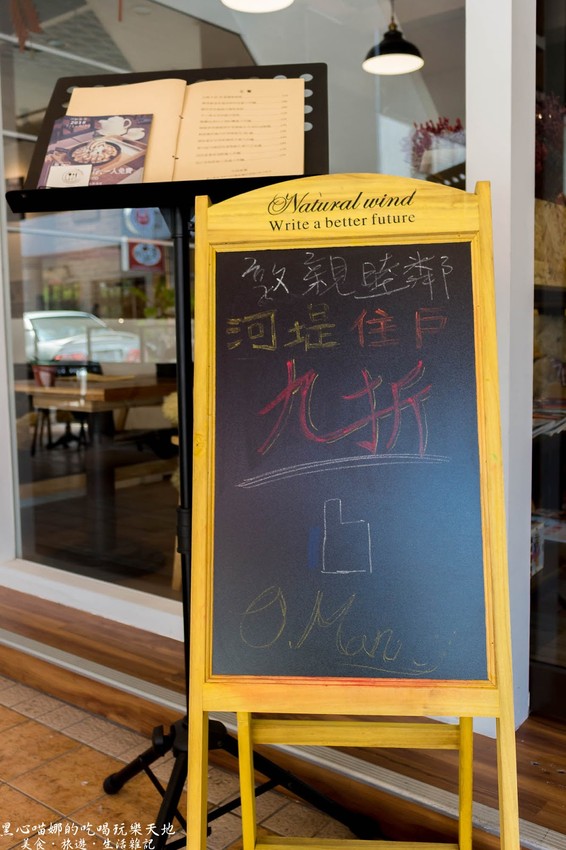 Natural wind
Write a better future
敦親睦鄰
河堤住戶
九折
O Man
黑心喵娜的吃喝玩樂天地
美食·旅遊·生活雜記